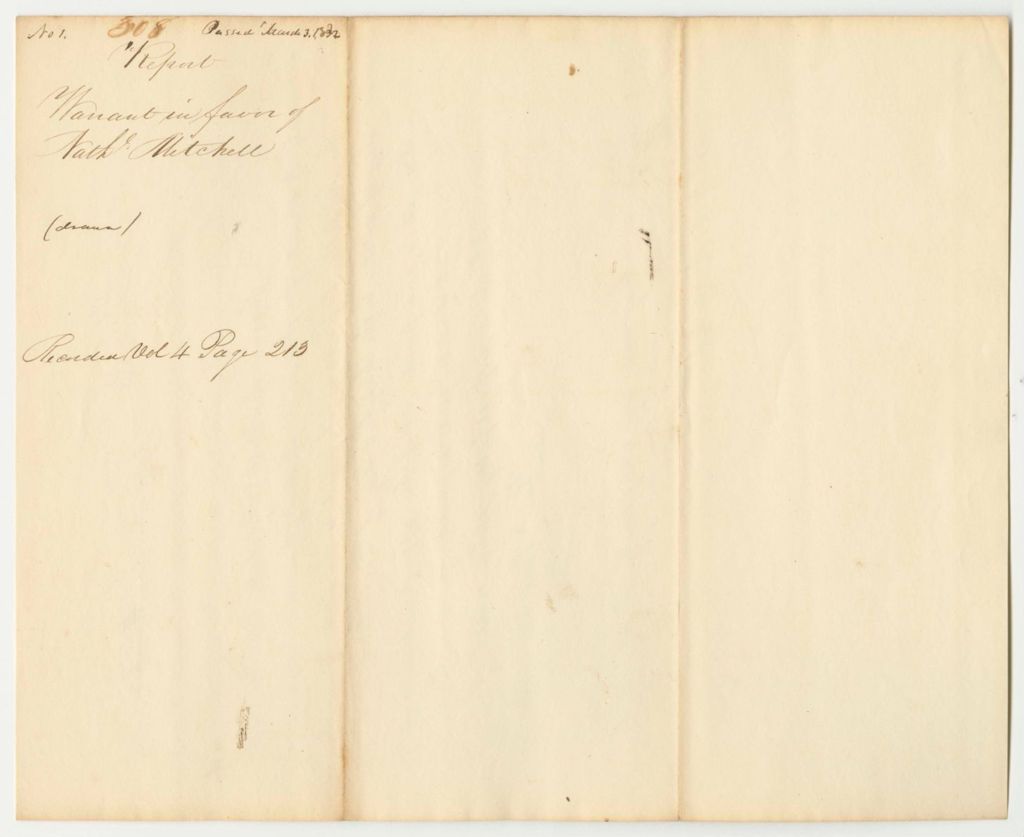 No 1. 308 Passed March 3, 1832
Report
Warrant in favor of
Nathl. Mitchell
(drawn)
Recorded Vol 4 Page 213